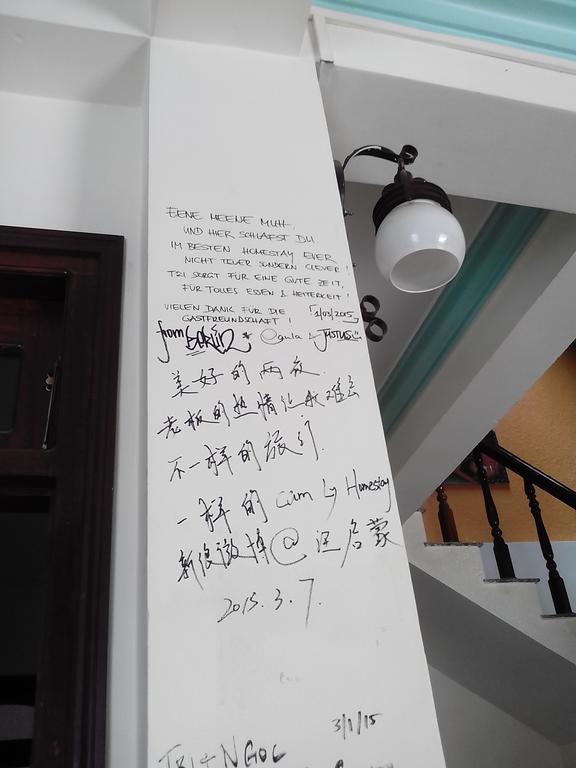 EENE MEENE MUH,
UND HIER SCHLÄFST DU
IM BESTEN HOMESTAY EVER,
NICHT TEUER SONDERN CLEVER!
TRI SORGT FÜR EINE GUTE ZEIT,
FÜR TOLLES ESSEN & HEITERKEIT!
VIELEN DANK FÜR DIE
GASTFREUNDSCHAFT!
from BERLIN * Paula & JUSTUS
美好的两夜.
老板的热情让我难忘
不一样的旅行.
一样的 cùm Ly Homestay
新浪微博@汪启蒙
2015.3.7.
3/1/15
TRI + NGOC